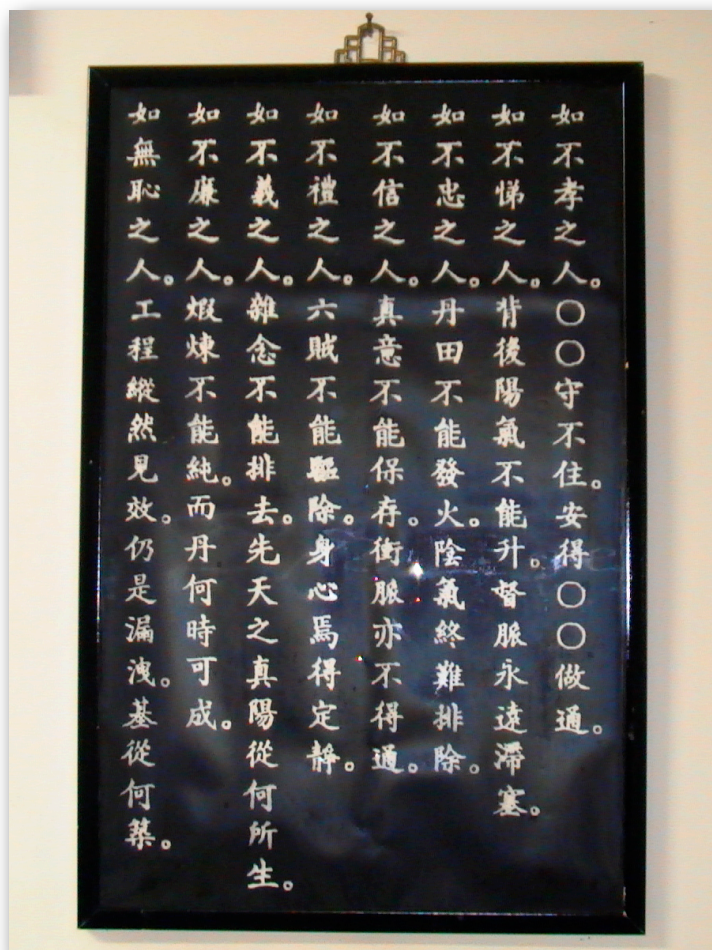 如不孝之人。〇〇守不住。安得〇〇做通。
如不悌之人。背後陽氣不能升。督脈永遠滯塞。
如不忠之人。丹田不能發火。陰氣終難排除。
如不信之人。真意不能保存。衝脈亦不得通。
如不禮之人。六賊不能驅除。身心焉得定靜。
如不義之人。雜念不能排去。先天之真陽從何所生。
如不廉之人。煆煉不能純。而丹何時可成。
如無恥之人。工程縱然見效。仍是漏洩。基從何築。